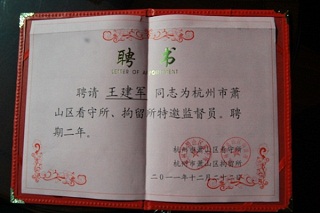 聘 书
LETTER OF APPOINTMENT
聘请 王建军 同志为杭州市萧
山区看守所、拘留所特邀监督员。聘
期二年。
杭州市萧山区看守所
杭州市萧山区拘留所
二〇一一年十二月二十二日